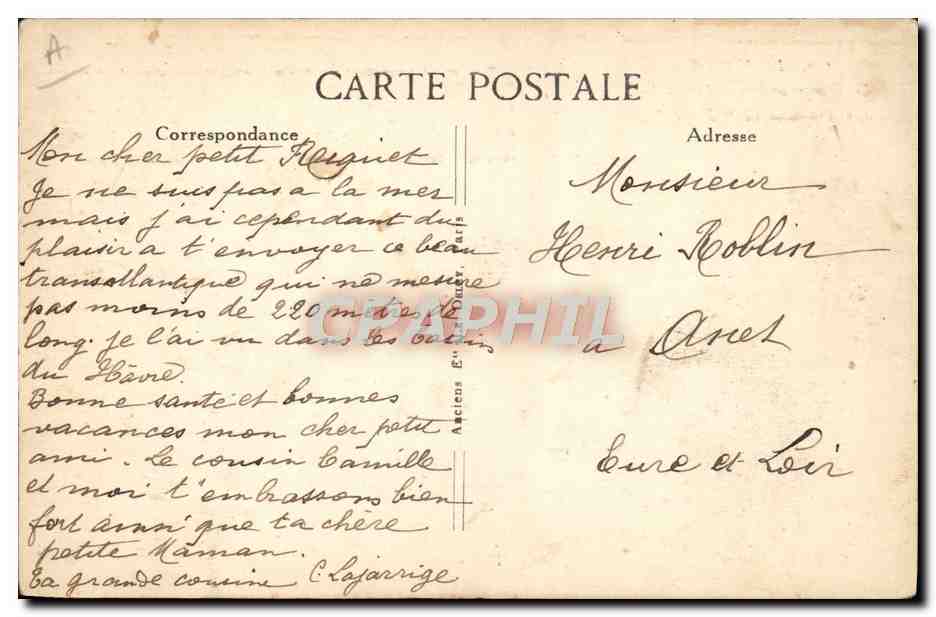 A
CARTE POSTALE
Correspondance
Adresse
Mon cher petit
Je ne suis pas a la mer
mais j'ai cependant du
plaisir a t'envoyer ce beau
transatlantique qui ne mesure
pas moins de 220 mètres de
long. je l'ai vu dans les bassins
du Hâvre.
Bonne santé et bonnes
vacances mon cher petit
ami. Le cousin Camille
et moi t'embrassons bien
fort ainsi que ta chère
petite Maman.
ta grande cousine C. Lajarrige
Anciens Et Paris
Monsieur
Henri Roblin
a Anet
Eure et Loir
CPAPHIL